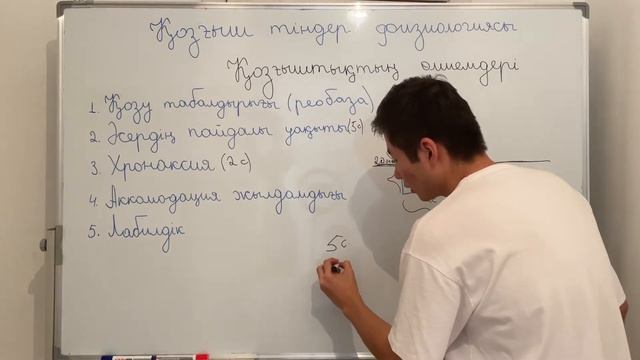 Қозғыш тіндер физиологиясы
Қозғыштықтың өлшемдері
1. Қозу табалдырығы (реобаза)
2. Әсердің пайдалы уақыты (5с)
3. Хронаксия (2с)
4. Аккомодация жылдамдығы
5. Лабилдік
5с